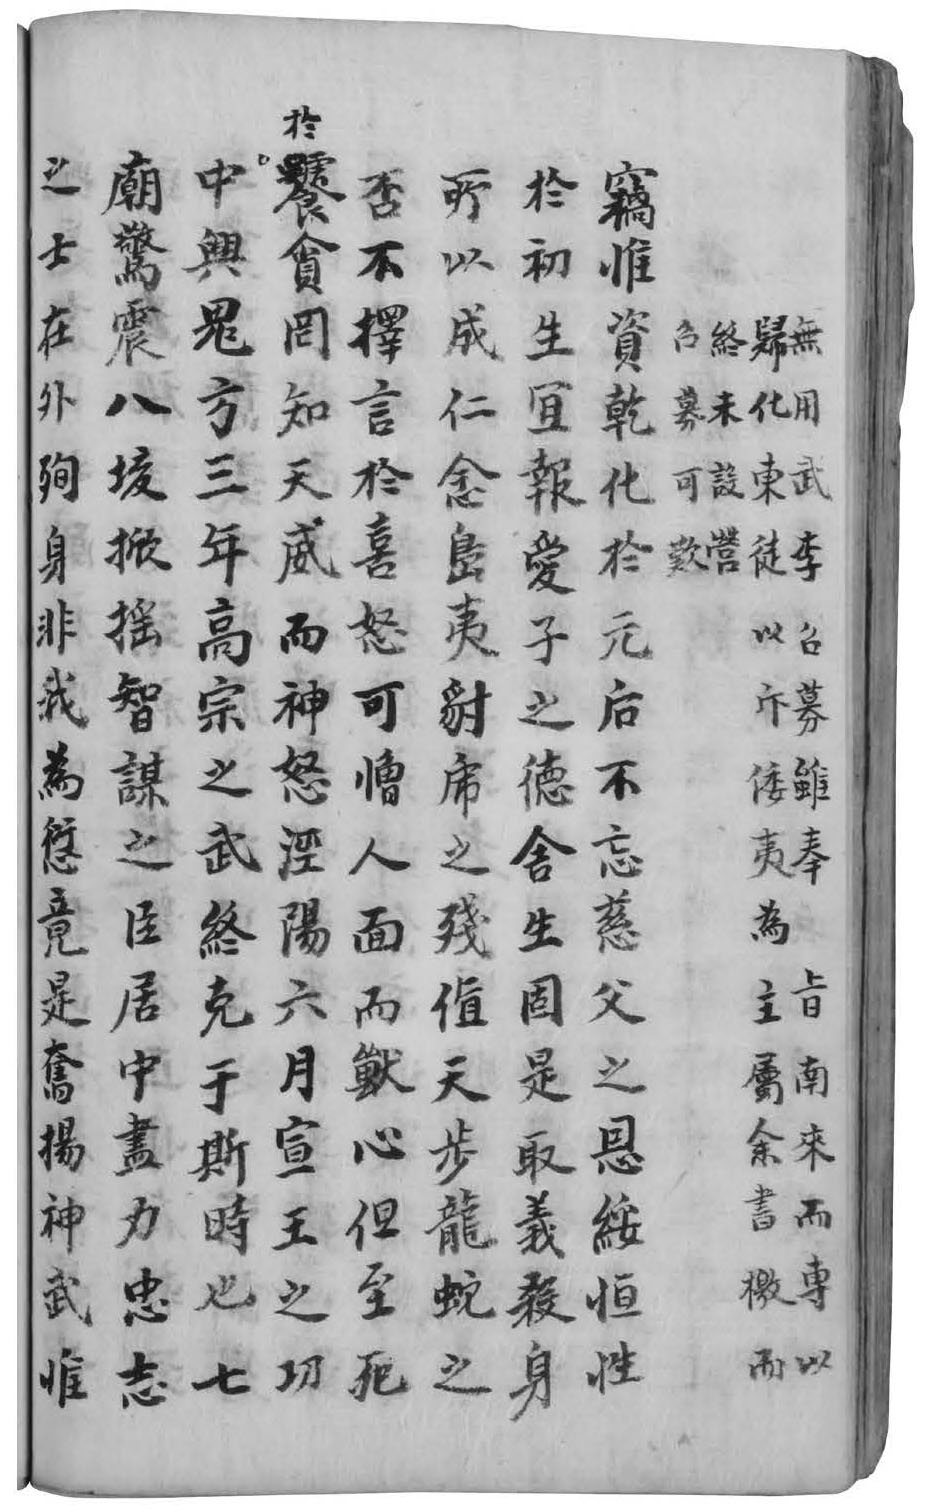 無用武李召募雖奉　旨南來而專以
歸化東徒以斥倭夷為主屬余書檄而
終未設營
召募可歎
竊惟資乾化於元后不忘慈父之恩綏恒性
於初生宜報愛子之德舍生固是取義殺身
所以成仁念島夷豺虎之殘值天步龍蛇之
否不擇言於喜怒可憎人面而獸心但至死
於饕貪罔知天威而神怒涇陽六月宣王之功
中興鬼方三年高宗之武終克于斯時也七
廟驚震八垓掀搖智謀之臣居中盡力忠志
之士在外殉身非我為愆竟是奮揚神武惟